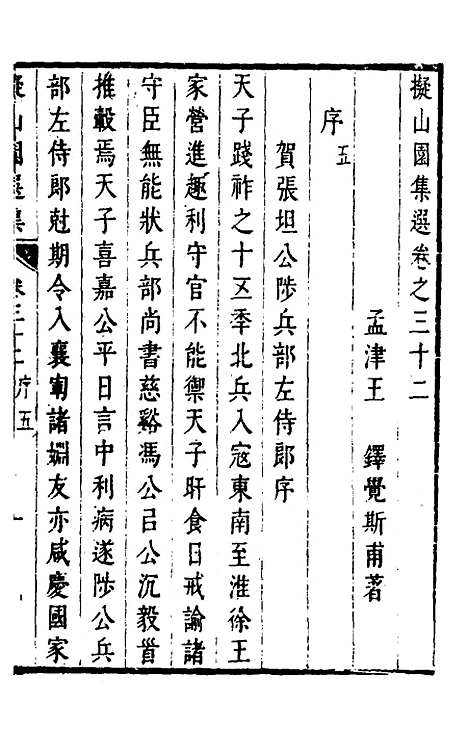 擬山園集選卷之三十二
孟津王　鐸覺斯甫著
序五
賀張坦公陟兵部左侍郎序
天子踐祚之十五季北兵入寇東南至淮徐王
家營進趣利守官不能禦天子旰食日戒諭諸
守臣無能狀兵部尚書慈谿馮公吕公沉毅首
推轂焉天子喜嘉公平日言中利病遂陟公兵
部左侍郎尅期令入襄甯諸姻友亦咸慶國家
擬山園選集　卷三十二　序五　一